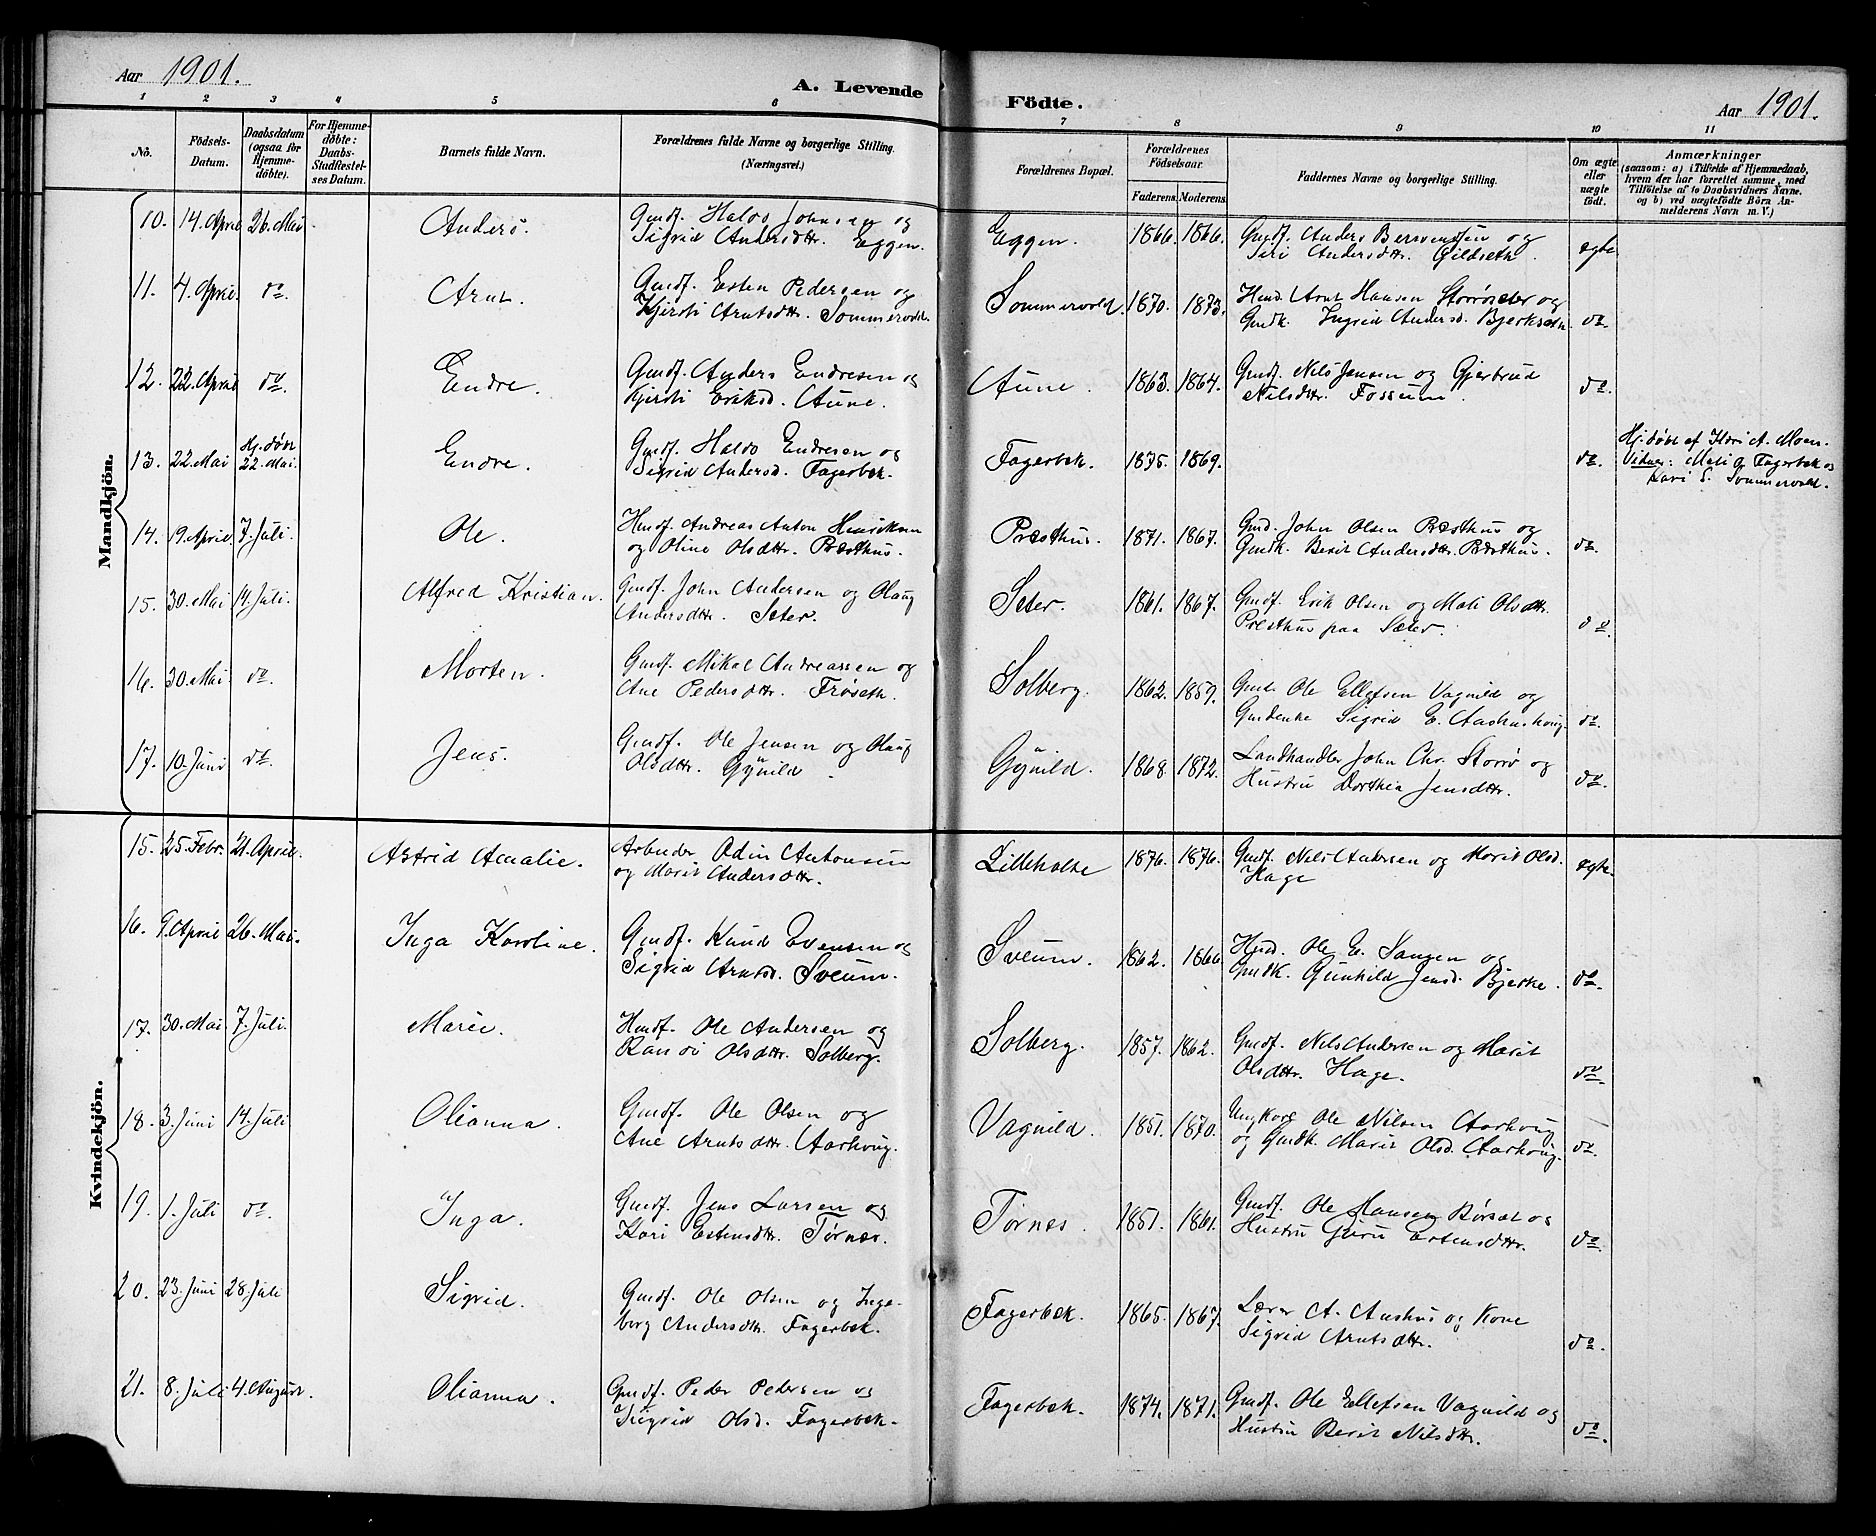 Aar 1901.
A. Levende
Födte.
Aar 1901.
1 2 3 4 5 6 7 8 9 10 11
No.
Födsels-
Datum.
Daabsdatum
(ogsaa for
Hjemme-
döbte).
For Hjemme-
döbte:
Daabs-
Stadfæstel-
ses Datum.
Barnets fulde Navn.
Forældrenes fulde Navne og borgerlige Stilling.
(Næringsvei.)
Forældrenes Bopæl.
Forældrenes
Födselsaar.
Faderens. Moderens.
Faddernes Navne og borgerlige Stilling.
Om ægte
eller
uægte
født.
Anmærkninger
(saasom: a) i Tilfælde af Hjemmedaab,
hvem der har forrettet samme, med
Tilföielse af to Daabsvidners Navne.
og b) ved uægtefödte Börn An-
melderens Navn m. V.)
Mandkjön.
10. 14. April 26. Mai Anders. Gmdf. Haldo Johnsen og
Sigrid Andersdttr. Eggen. Eggen. 1866. 1866. Gmdf. Anders Bersvendsen og
Siri Andersdttr. Gildseth. egte
11. 4. April. do. Arnt. Gmdf. Esten Pedersen og
Kjersti Arntsdttr. Sommervold. Sommervold. 1870. 1873. Arnt Hansen Storrøseter og
Gmdk. Ingrid Andersd. Bjerksetn do.
12. 22. April do. Endre. Gmdf. Anders Endresen og
Kjersti Eriksd. Aune. Aune. 1863. 1864. Gmdf. Nils Jensen og Gjertrud
Nilsdttr. Fossum. do.
13. 22. Mai Hj. døbt
22. Mai. Endre. Gmdf. Haldo Endresen og
Sigrid Andersd. Fagerbek. Fagerbek. 1875. 1869. do. Hj. døbt af Kari A. Moen.
Vidner: Mali O. Fagerbek og
Kari E. Sommervold.
14. 19. April. 7. Juli. Ole. Husf. Andreas Anton Henriksen
og Oline Olsdttr. Præsthus. Præsthus. 1871. 1867. Gmd. John Olsen Præsthus og
Gmdk. Berit Andersdttr. Præsthus. do.
15. 30. Mai 14. Juli. Alfred Kristian. Gmdf. John Andersen og Olaug
Andersdttr. Seter. Seter. 1861. 1867. Gmdf. Erik Olsen og Mali Olsdttr.
Presthus paa Sæter. do
16. 30. Mai do. Morten. Gmdf. Mikal Andreassen og
Ane Pedersdttr. Frøseth. Solberg. 1862. 1859. Gmdf. Ole Ellefsen Vagnild og
Gmdenke Sigrid E. Aashushaug. do.
17. 10. Juni do. Jens. Gmdf. Ole Jensen og Olaug
Olsdttr. Gynild. Gynild. 1868. 1872. Landhandler John Chr. Storrø og
Hustru Dorthea Jensdttr. do
Kvindekjön.
15. 25. Febr. 21. April. Astrid Amalie. Arbeider Odin Antonsen
og Marit Andersdttr. Lilleholte 1876. 1876. Gmdf. Nils Andersen og Marit Olsd.
Hage egte.
16. 9. April 26. Mai. Inga Karoline. Gmdf. Knud Evensen og
Sigrid Arntsd. Sveum. Sveum. 1862. 1866. Ole E. Sangen og
Gmdk. Gunhild Jensd. Bjerke. do.
17. 30. Mai 7. Juli. Marie. Husf. Ole Andersen og
Randi Olsdttr. Solberg. Solberg. 1857. 1862. Gmdf. Nils Andersen og Marit
Olsdttr. Hage. do.
18. 3. Juni 14. Juli Olianna. Gmdf. Ole Olsen og
Ane Arntsdttr. Aarhoug. Vagnild. 1851. 1870. Ungkarl Ole Nilsen Aarhoug
og Gmdk. Marit Olsd. Aarhoug. do.
19. 1. Juli do. Inga. Gmdf. Jens Larsen og
Kari Estensdttr. Tørnes. Tørnes. 1851. 1861. Gmdf. Ole Hansen Børset og
Hustru Guru Estensdttr. do.
20. 23. Juni 28. Juli Sigrid. Gmdf. Ole Olsen og Inge-
borg Andersdttr. Fagerbek. Fagerbek. 1865. 1867. Lærer A. Aashus og Kone
Sigrid Arntsdttr. do.
21. 8. Juli 4. August. Olianna. Gmdf. Peder Pedersen og
Sigrid Olsd. Fagerbek. Fagerbek. 1874. 1871. Gmdf. Ole Ellefsen Vagnild og
Hustru Berit Nilsdttr. do.